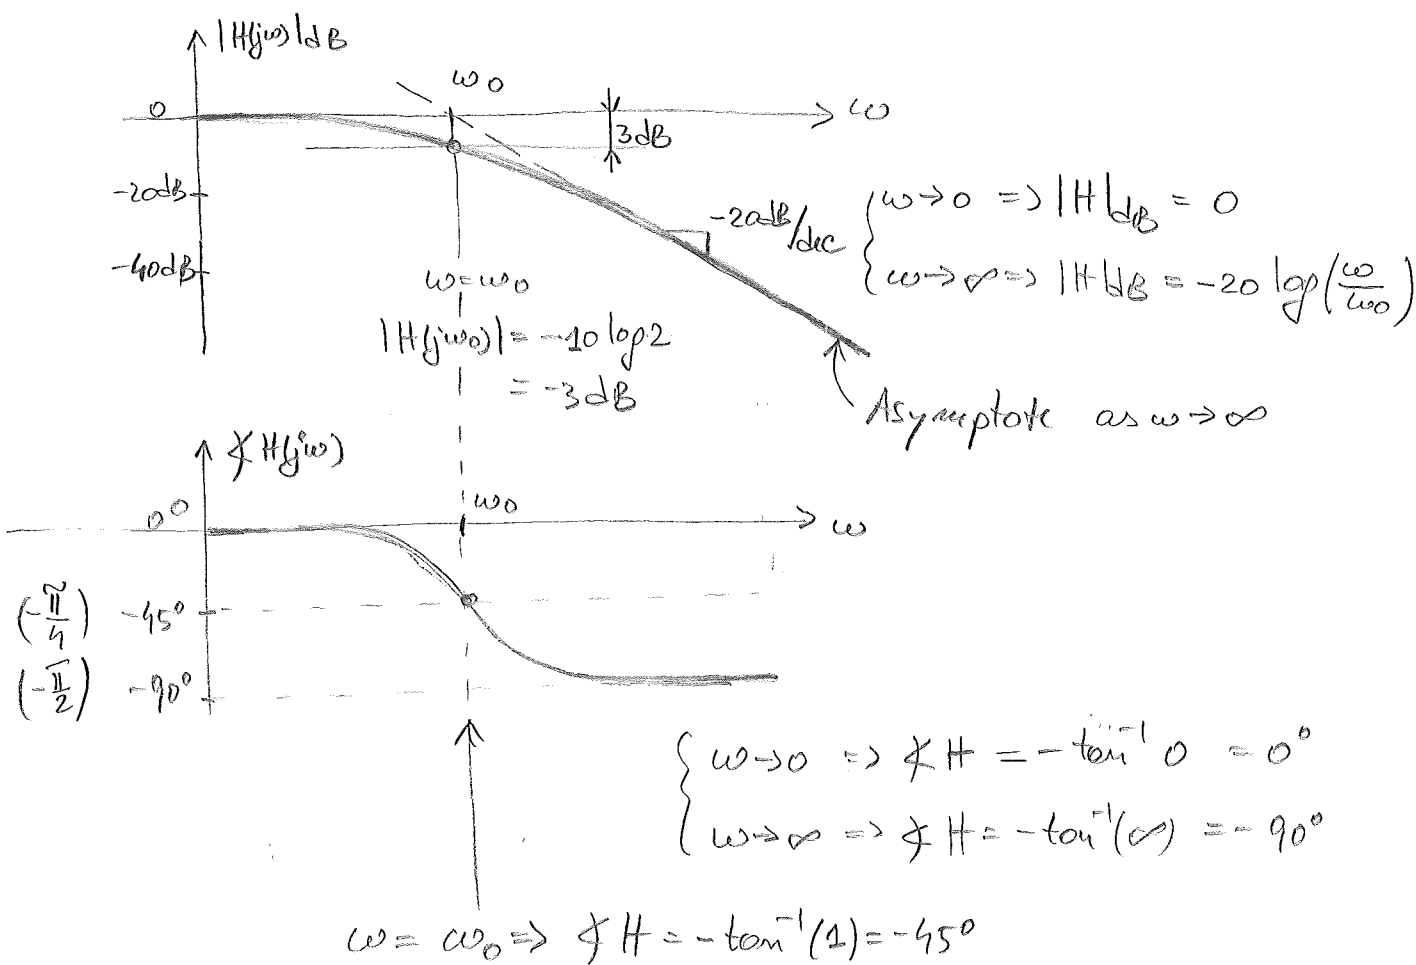 |H(jω)|dB
ω0
0
ω
3dB
-20dB
-20dB/dec
{ω→0 => |H|dB = 0
-40dB
ω=ω0
{ω→∞ => |H|dB = -20 log(ω/ω0)
|H(jω0)| = -10 log 2
= -3dB
Asymptote as ω→∞
∡H(jω)
0°
ω0
ω
(-π/4) -45°
(-π/2) -90°
{ω→0 => ∡H = -tan⁻¹ 0 = 0°
{ω→∞ => ∡H = -tan⁻¹(∞) = -90°
ω = ω0 => ∡H = -tan⁻¹(1) = -45°